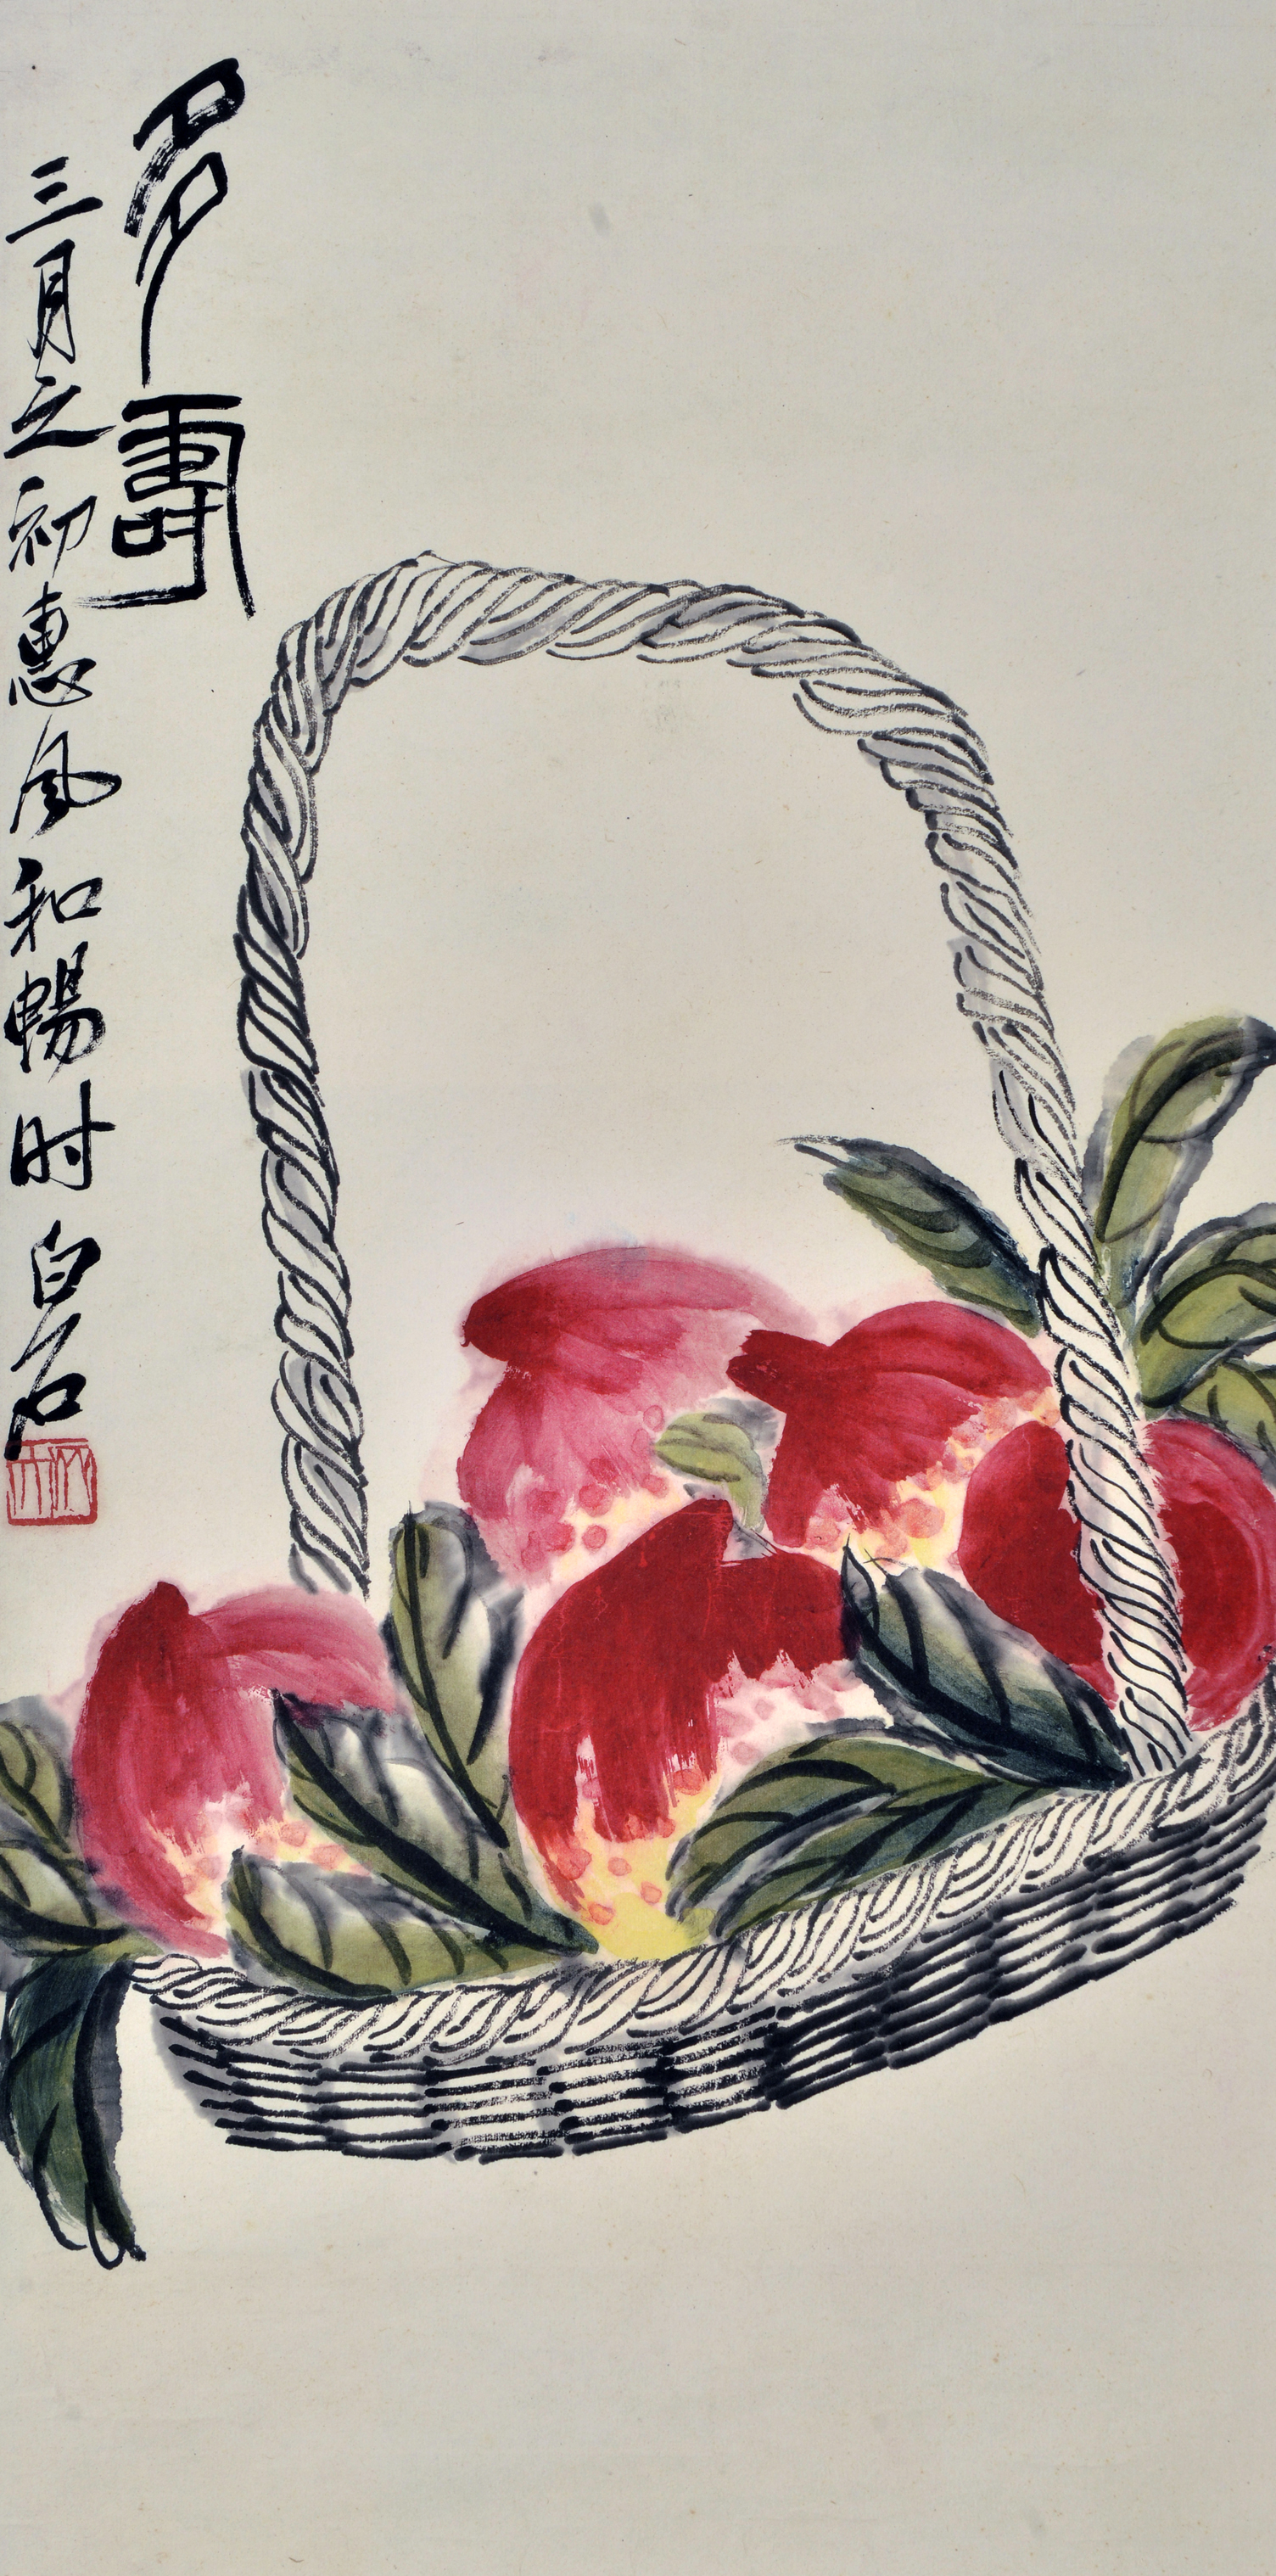 多壽
三月之初惠風和暢时白石
木人